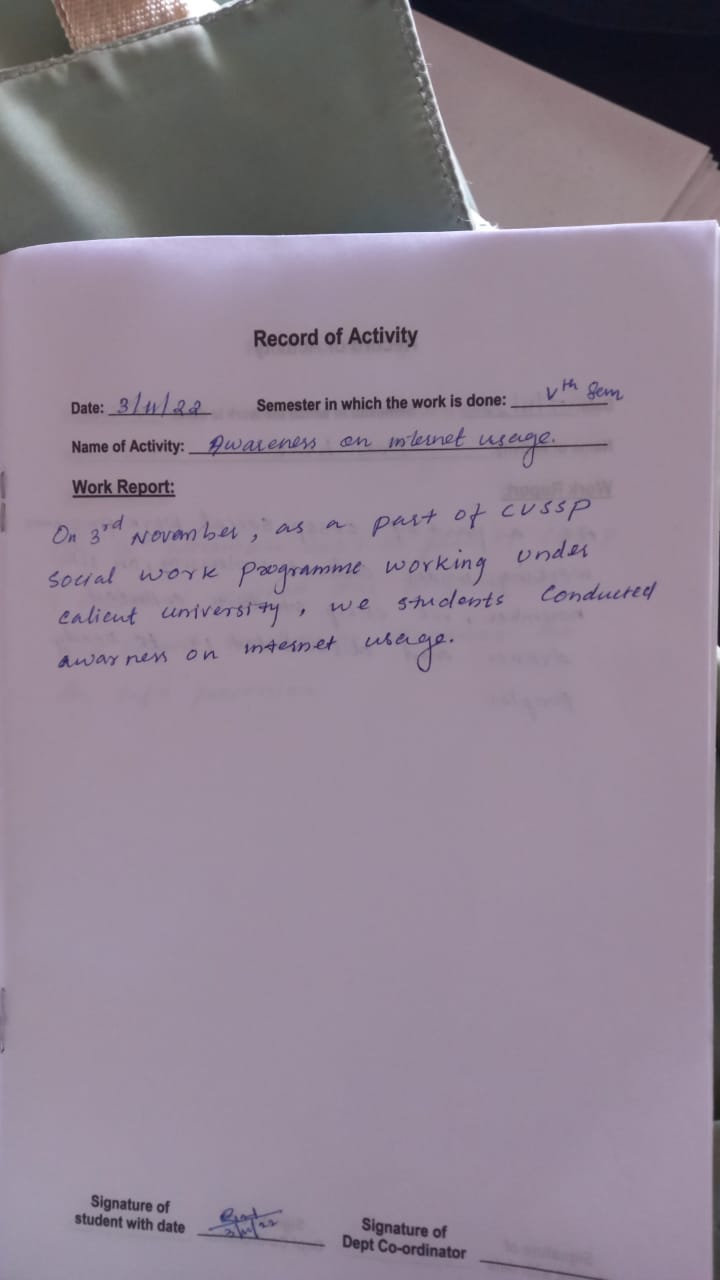 Record of Activity
Date: 3/11/22 Semester in which the work is done: Vth Sem
Name of Activity: Awareness on internet usage.
Work Report:
On 3rd November, as a part of CUSSP
Social work programme working under
calicut university, we students Conducted
awarness on internet usage.
Signature of
student with date 3/11/22
Signature of
Dept Co-ordinator